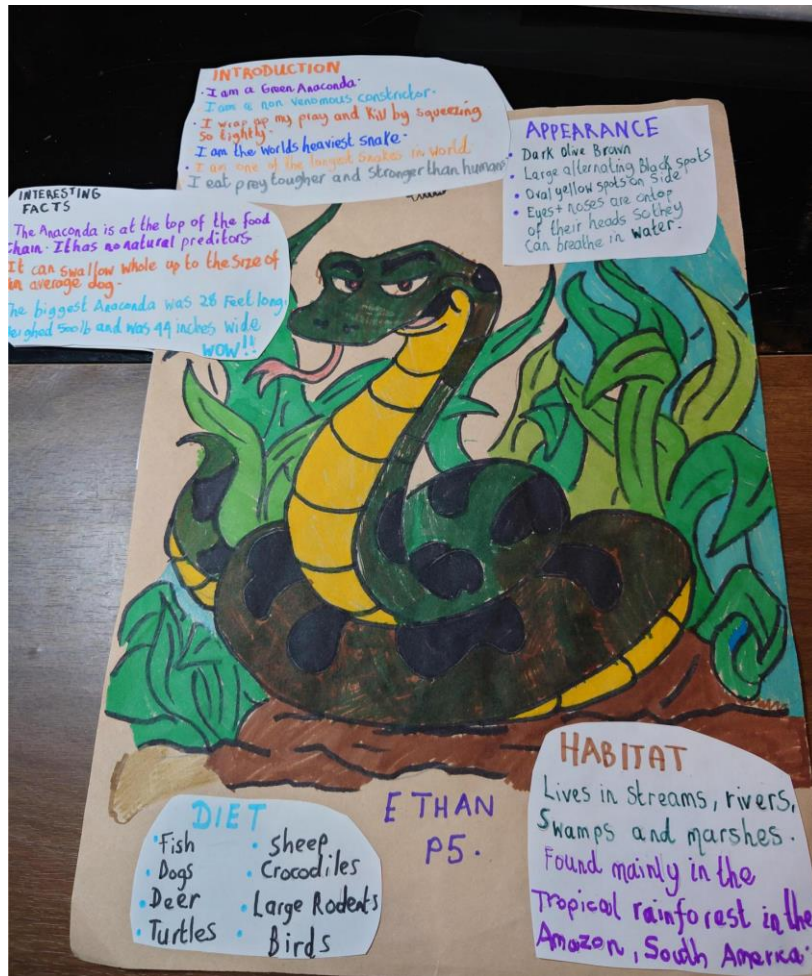 INTRODUCTION
· I am a Green Anaconda.
I am a non venomous constrictor.
· I wrap up my pray and kill by squeezing
so tightly.
I am the worlds heaviest snake.
· I am one of the largest snakes in world
I eat prey tougher and stronger than human
APPEARANCE
• Dark Olive Brown
• Large alternating Black spots
• Oval yellow spots on side
• Eyes + noses are ontop
of their heads so they
can breathe in water.
INTERESTING
FACTS
The Anaconda is at the top of the food
chain. It has no natural preditors
It can swallow whole up to the size of
an average dog.
The biggest Anaconda was 28 Feet long.
weighed 500lb and was 44 inches wide
WOW!!
DIET
• Fish
• Dogs
• Deer
• Turtles
• Sheep
• Crocodiles
• Large Rodents
• Birds
ETHAN
P5.
HABITAT
Lives in streams, rivers,
Swamps and marshes.
Found mainly in the
Tropical rainforest in the
Amazon, South America.